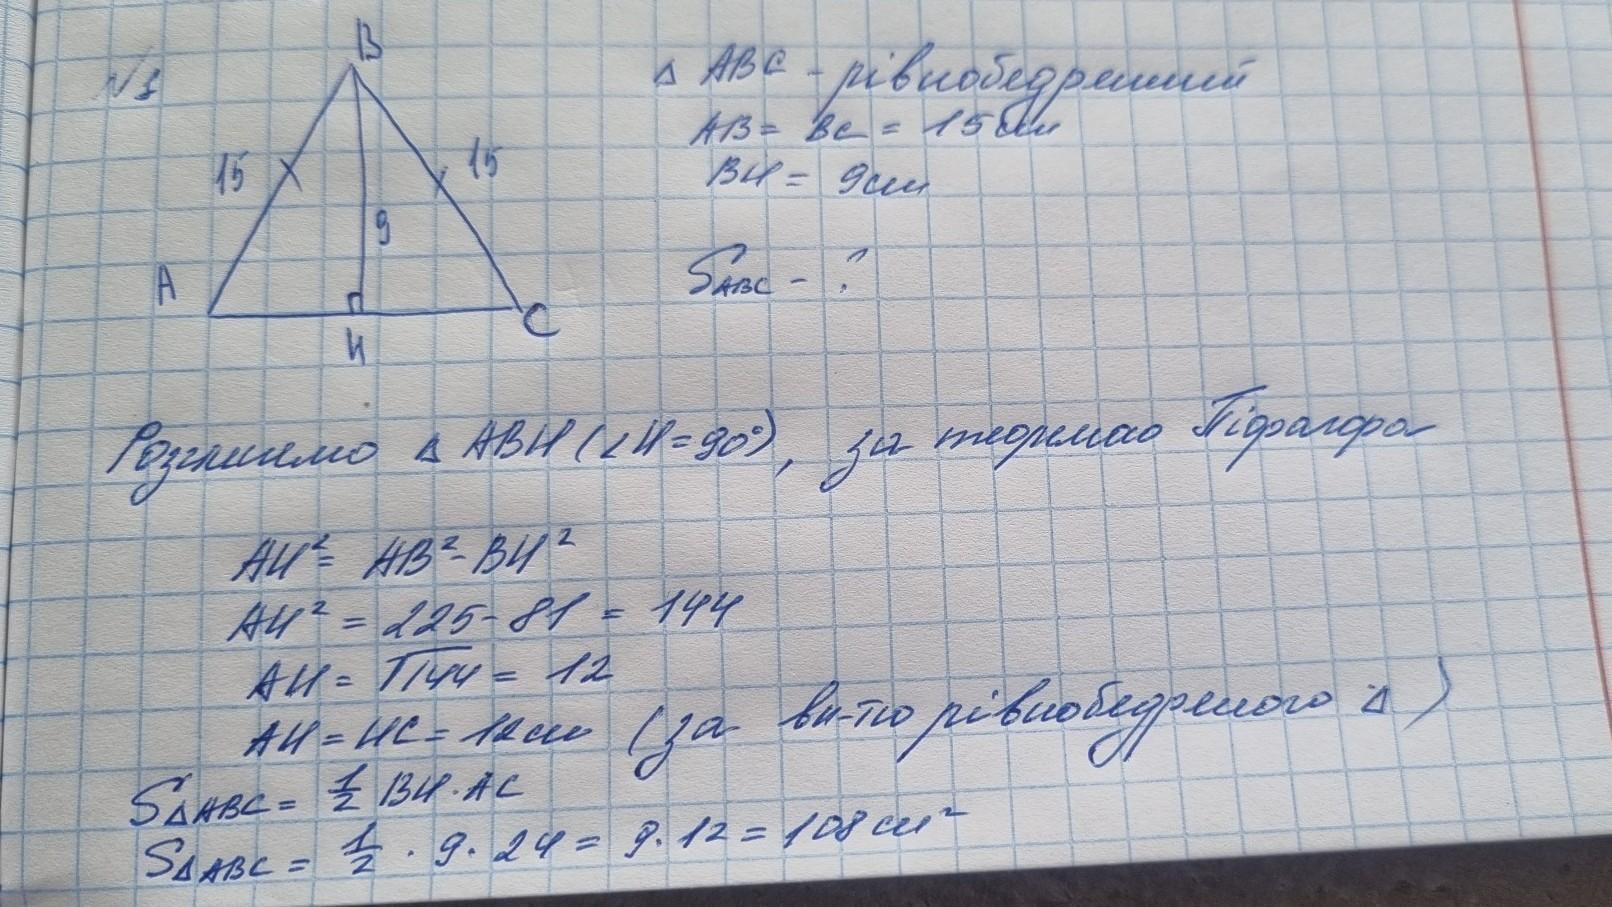 №1
B
15
15
9
A
H
C
△ ABC - рівнобедрений
AB = BC = 15 см
BH = 9 см
SABC - ?
Розглянемо △ ABH (∠H = 90°), за теоремою Піфагора
AH² = AB² - BH²
AH² = 225 - 81 = 144
AH = √144 = 12
AH = HC = 12 см (за вл-тю рівнобедреного △)
S△ABC = 1/2 BH · AC
S△ABC = 1/2 · 9 · 24 = 9 · 12 = 108 см²